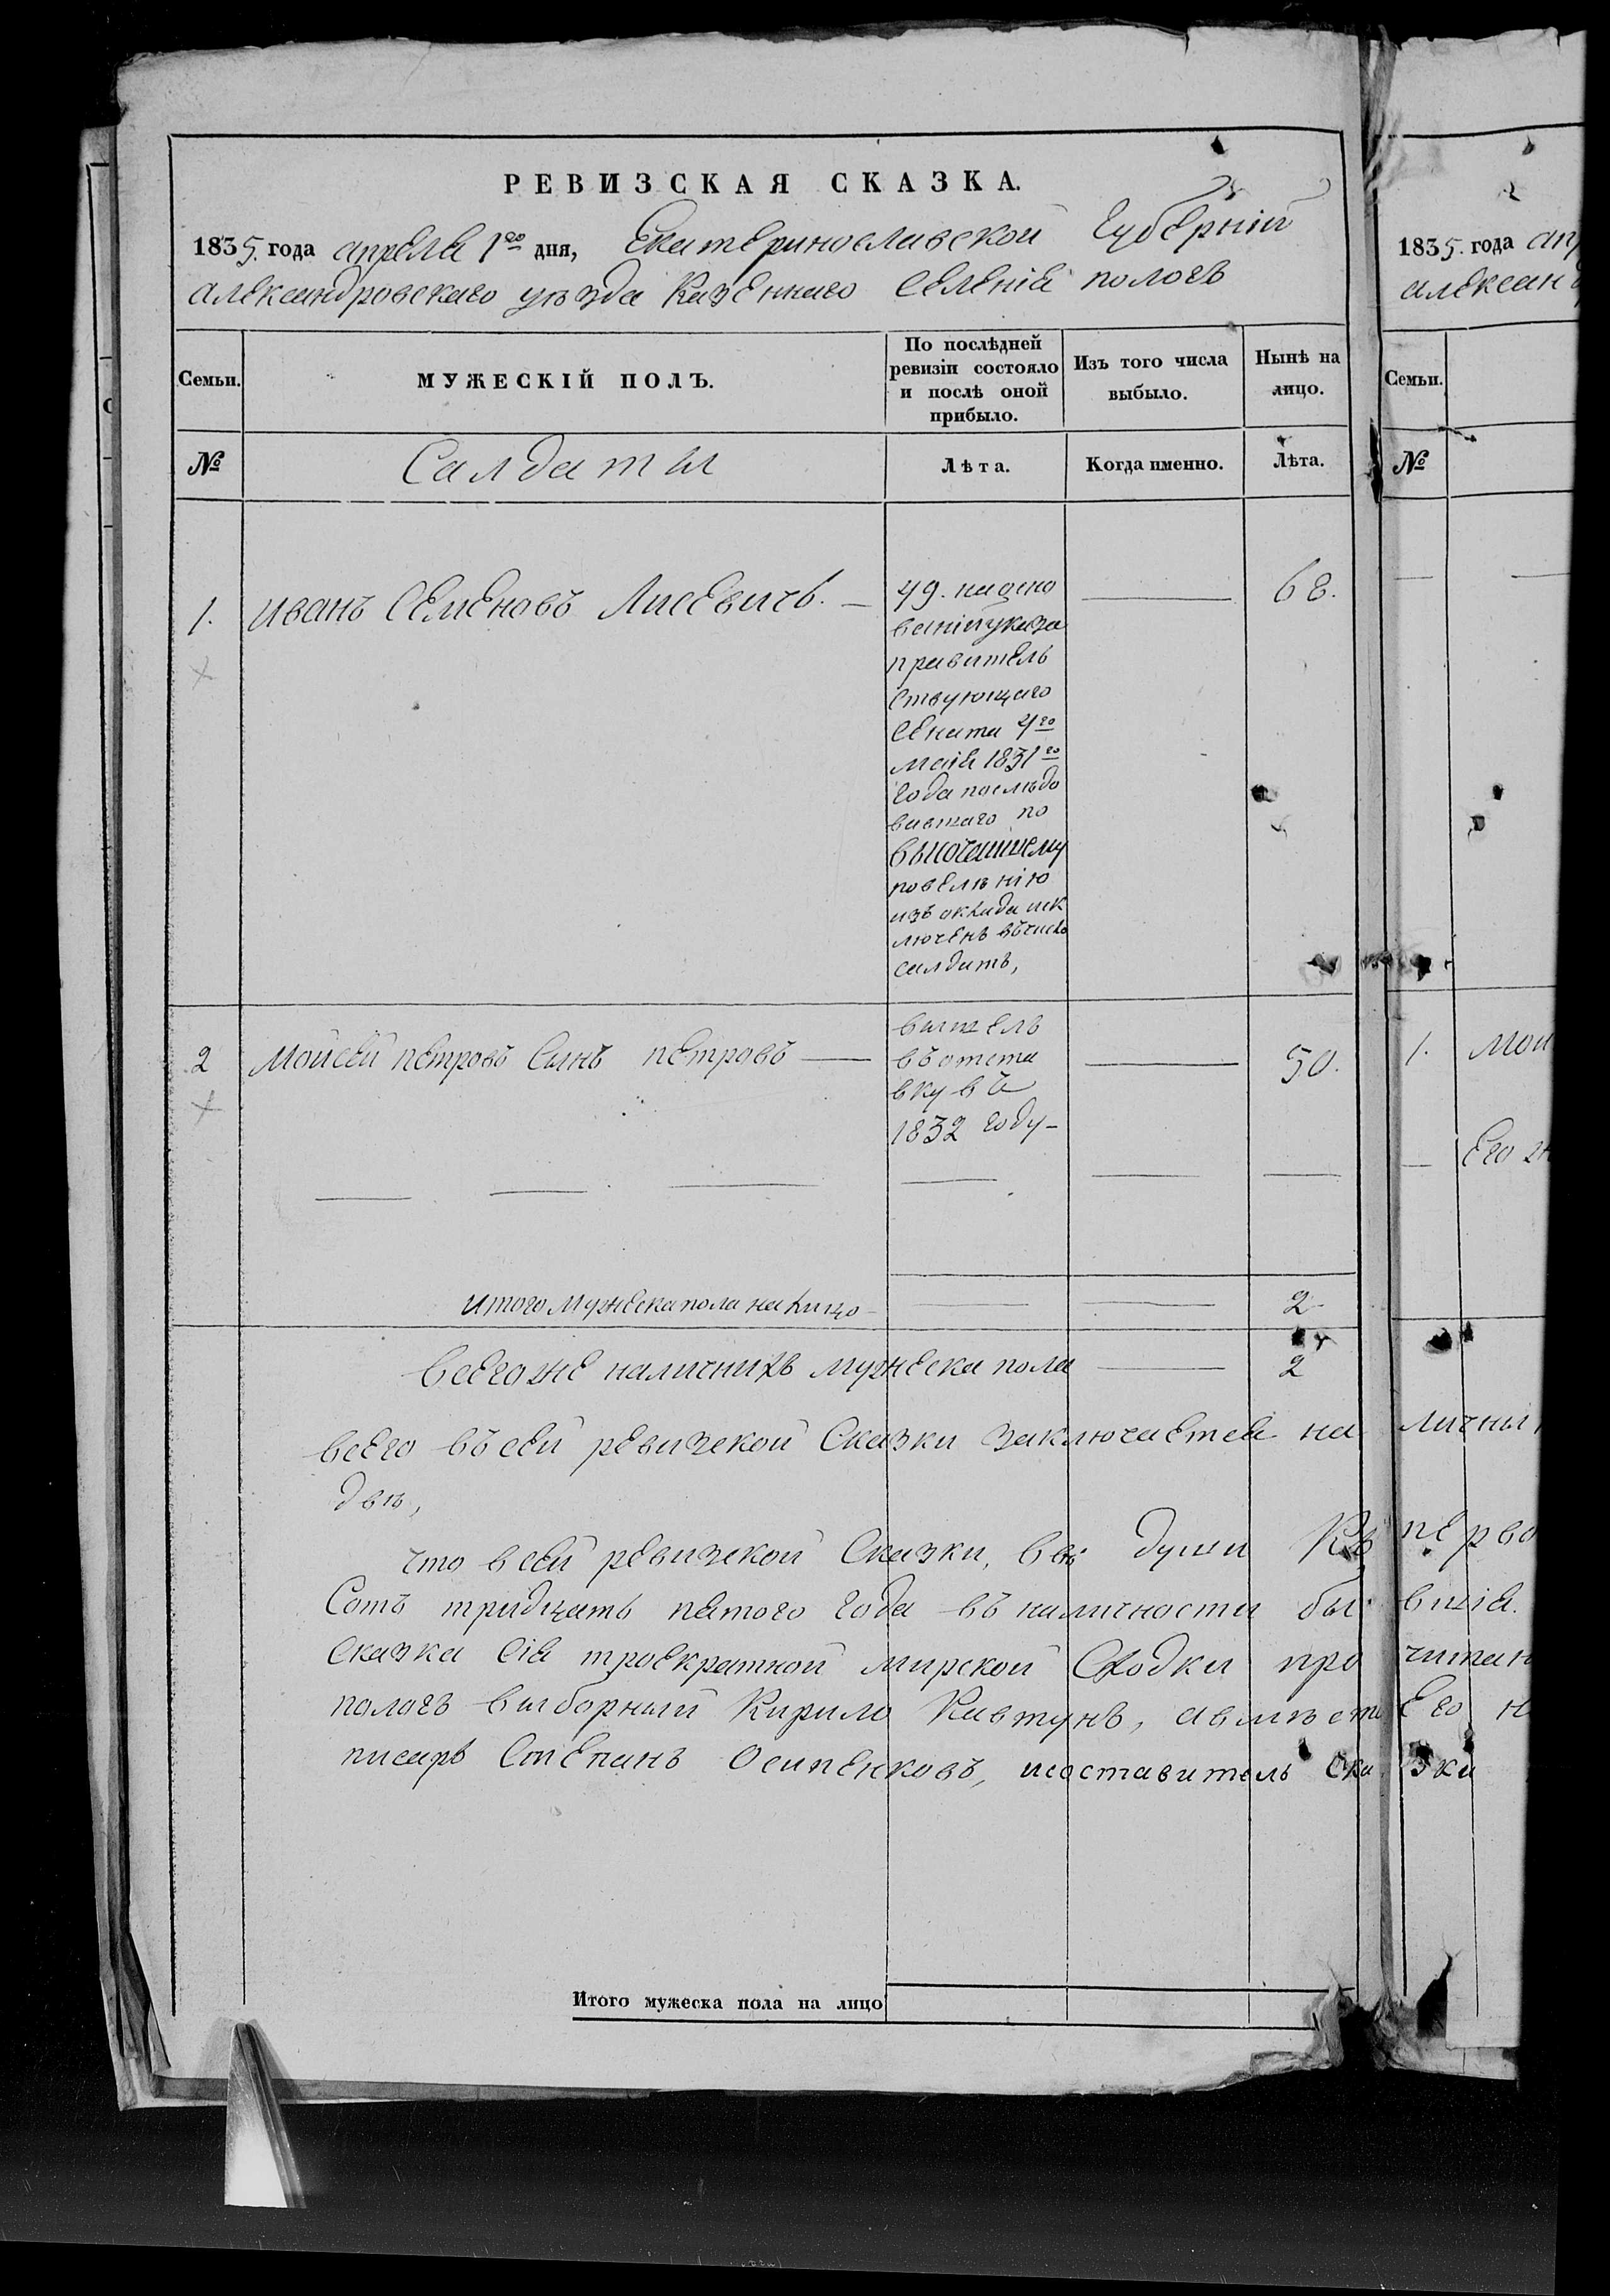 РЕВИЗСКАЯ СКАЗКА.
1835. года апреля 1го дня, Екатеринославской Губернiй
александровскаго уѣзда Казеннаго Селенiя пологъ
Семьи. МУЖЕСКІЙ ПОЛЪ. По послѣдней ревизіи состояло и послѣ оной прибыло. Изъ того числа выбыло. Нынѣ на лицо.
№ Салдаты Лѣта. Когда именно. Лѣта.
1. иванъ Семеновъ Лисевичъ. — 49. на осно — 68.
ванiи указа
правитель
ствующаго
Сената 4го
маiя 1831го
года послѣдо
вавшаго по
высочайшему
повелѣнiю
изъ оклада иск
люченъ въ число
салдатъ,
2 Мойсей петровъ Сынъ петровъ — вышелъ
въ отста — 50.
вку въ
1832 году —
итого мужеска пола на лицо — — 2
всего же наличныхъ мужеска пола — 2
всего въ сей ревизской Сказки заключается на
двѣ,
что в сей ревизской Сказки, всѣ души Къ
Сотъ тридцать пятого года въ наличности бы
Сказка Сiя троекратной мирской Сходки про
пологъ выборный Кирило Кавтунъ, а вмѣсто
писарь Степанъ Осипенковъ, и составитель Ска
Итого мужеска пола на лицо
1835. года апр
александ
Семьи.
№
1. Мои
Его
личны
перво
вшiя.
читан
Его н
зки